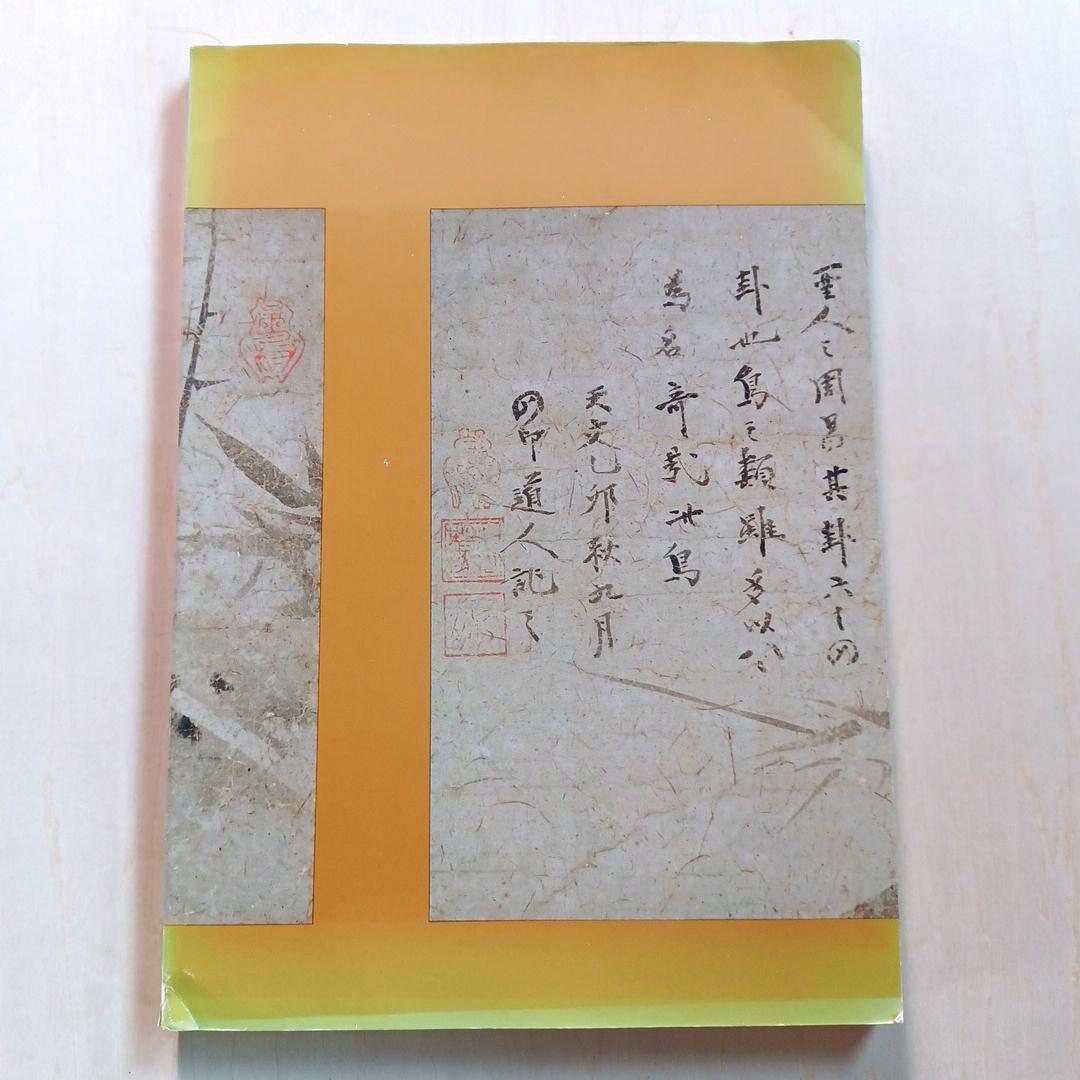 聖人之周易其卦六十四
卦也鳥之類雖多以卦
為名奇哉此鳥
天文乙卯秋九月
四印道人誌之